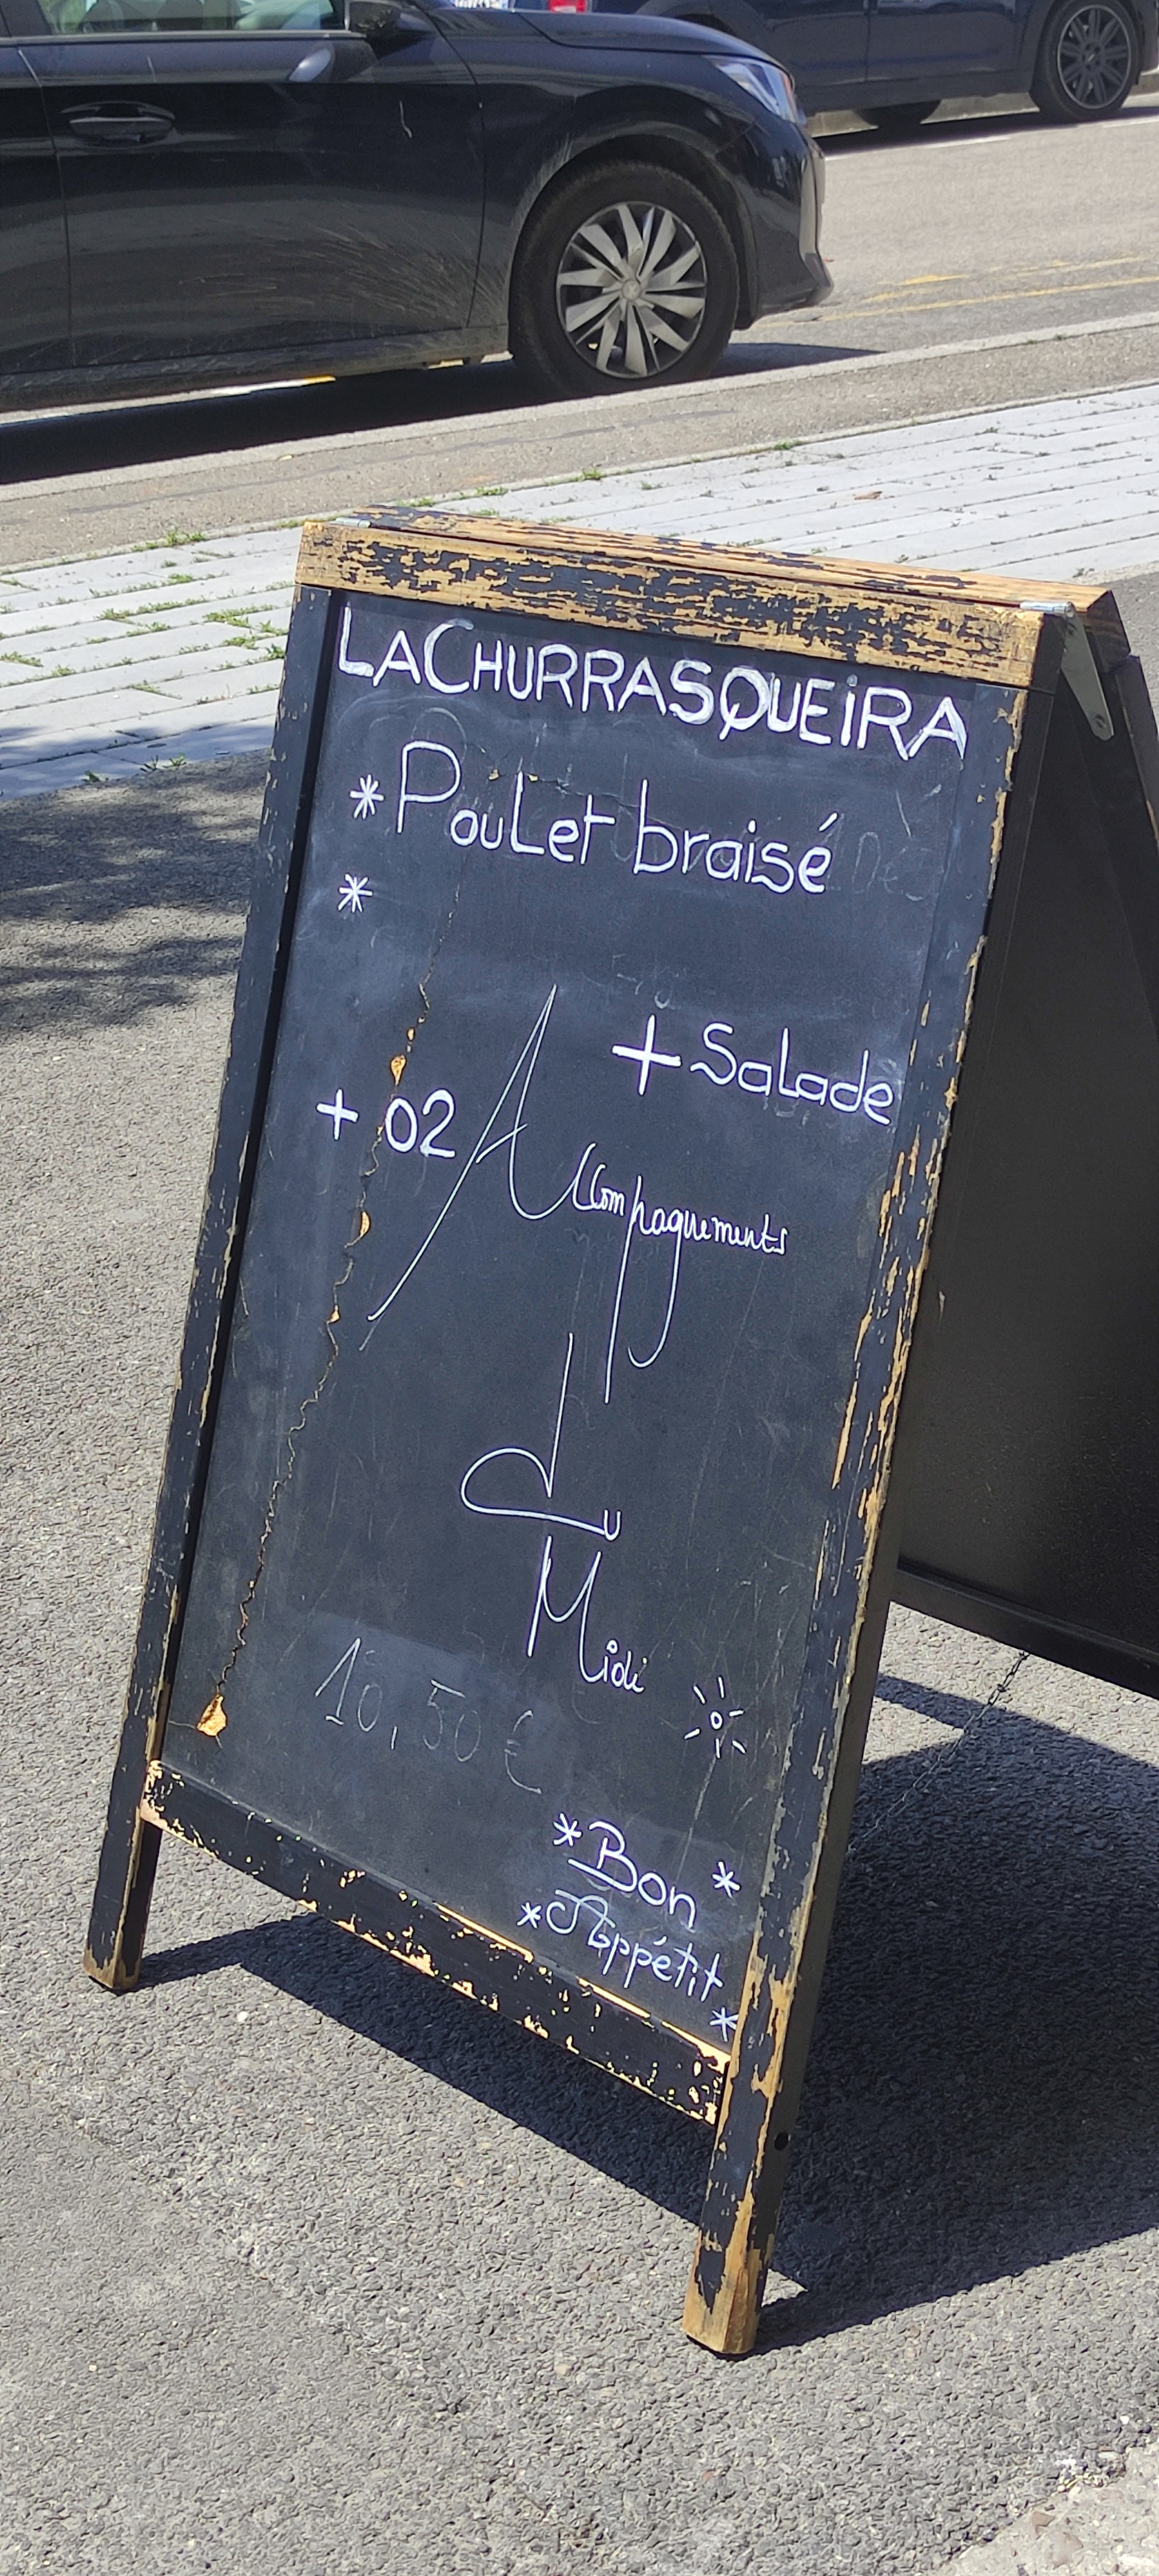 LACHURRASQUEiRA
* PouLet braisé
*
+ SaLade
+ 02 Accompagnements
du
Midi
10,50 €
* Bon *
* Appétit *